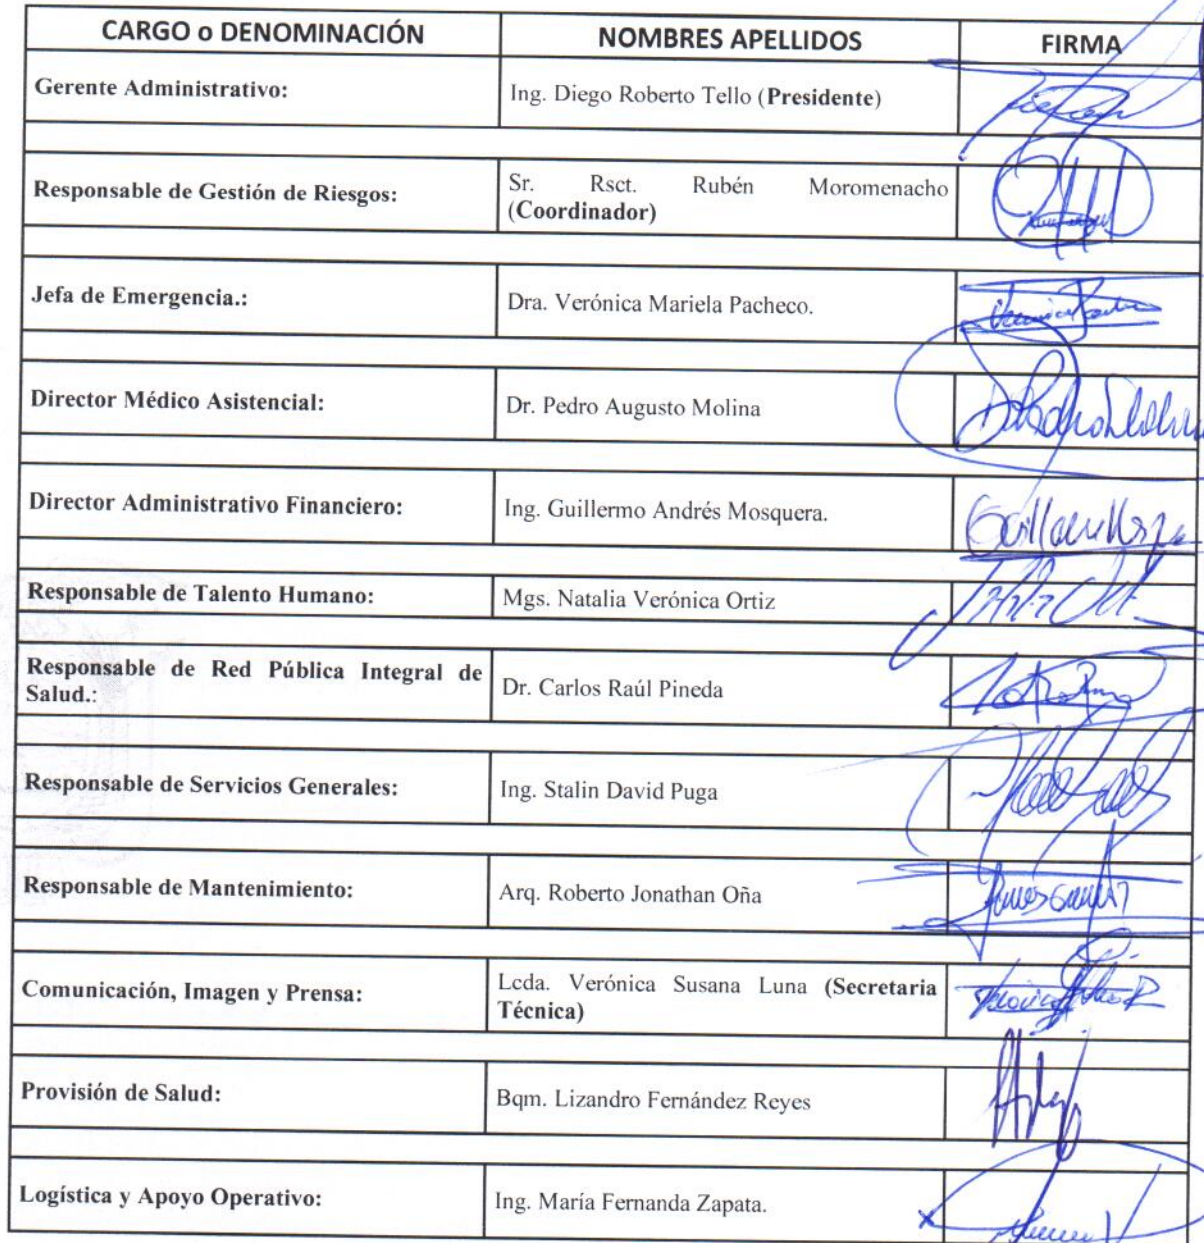 CARGO o DENOMINACIÓN NOMBRES APELLIDOS FIRMA
Gerente Administrativo: Ing. Diego Roberto Tello (Presidente)
Responsable de Gestión de Riesgos: Sr. Rsct. Rubén Moromenacho
(Coordinador)
Jefa de Emergencia.: Dra. Verónica Mariela Pacheco.
Director Médico Asistencial: Dr. Pedro Augusto Molina
Director Administrativo Financiero: Ing. Guillermo Andrés Mosquera.
Responsable de Talento Humano: Mgs. Natalia Verónica Ortiz
Responsable de Red Pública Integral de
Salud.: Dr. Carlos Raúl Pineda
Responsable de Servicios Generales: Ing. Stalin David Puga
Responsable de Mantenimiento: Arq. Roberto Jonathan Oña
Comunicación, Imagen y Prensa: Lcda. Verónica Susana Luna (Secretaria
Técnica)
Provisión de Salud: Bqm. Lizandro Fernández Reyes
Logística y Apoyo Operativo: Ing. María Fernanda Zapata.